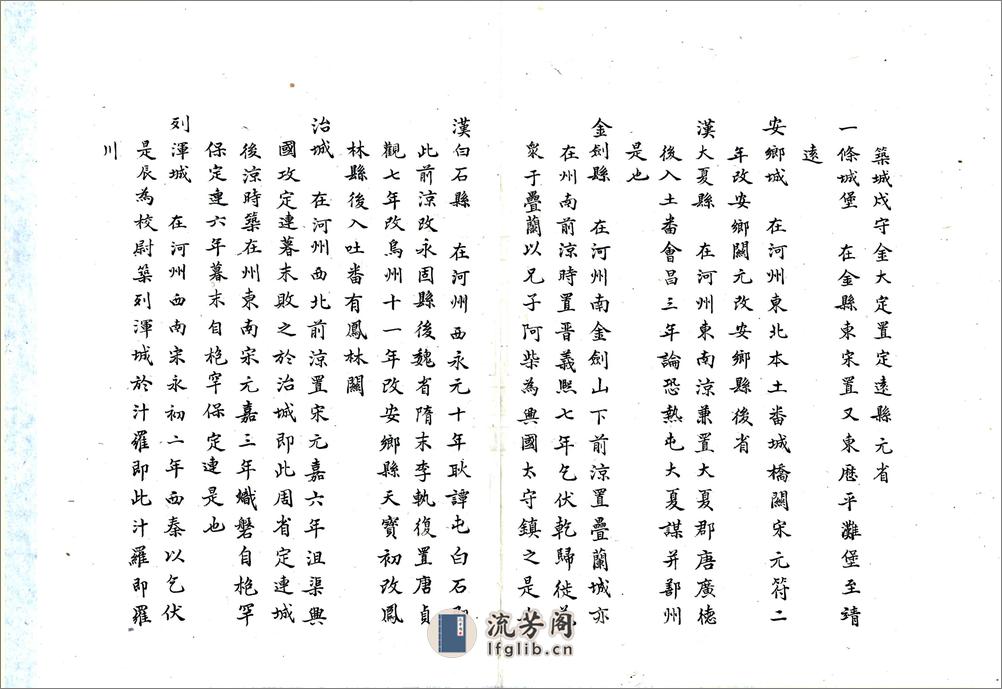 築城戍守金大定置定遠縣元省
一條城堡 在金縣東宋置又東歷平灘堡至靖
遠
安鄉城 在河州東北本土番城橋關宋元符二
年改安鄉關元改安鄉縣後省
漢大夏縣 在河州東南涼兼置大夏郡唐廣德
後入土番會昌三年論恐熱屯大夏謀并鄯州
是也
金劍縣 在河州南金劍山下前涼置疊蘭城亦
在州南前涼時置晋義熙七年乞伏乾歸徙
衆于疊蘭以兄子阿柴為興國太守鎮之是
漢白石縣 在河州西永元十年耿譚屯白石
此前涼改永固縣後魏省隋末李軌復置唐貞
觀七年改烏州十一年改安鄉縣天寶初改鳳
林縣後入吐番有鳳林關
治城 在河州西北前涼置宋元嘉六年沮渠興
國攻定連暮末敗之於治城即此周省定連城
後涼時築在州東南宋元嘉三年熾磐自枹罕
保定連六年暮末自枹罕保定連是也
列渾城 在河州西南宋永初二年西秦以乞伏
是辰為校尉築列渾城於汁羅即此汁羅即羅
川
流芳阁
lfglib.cn